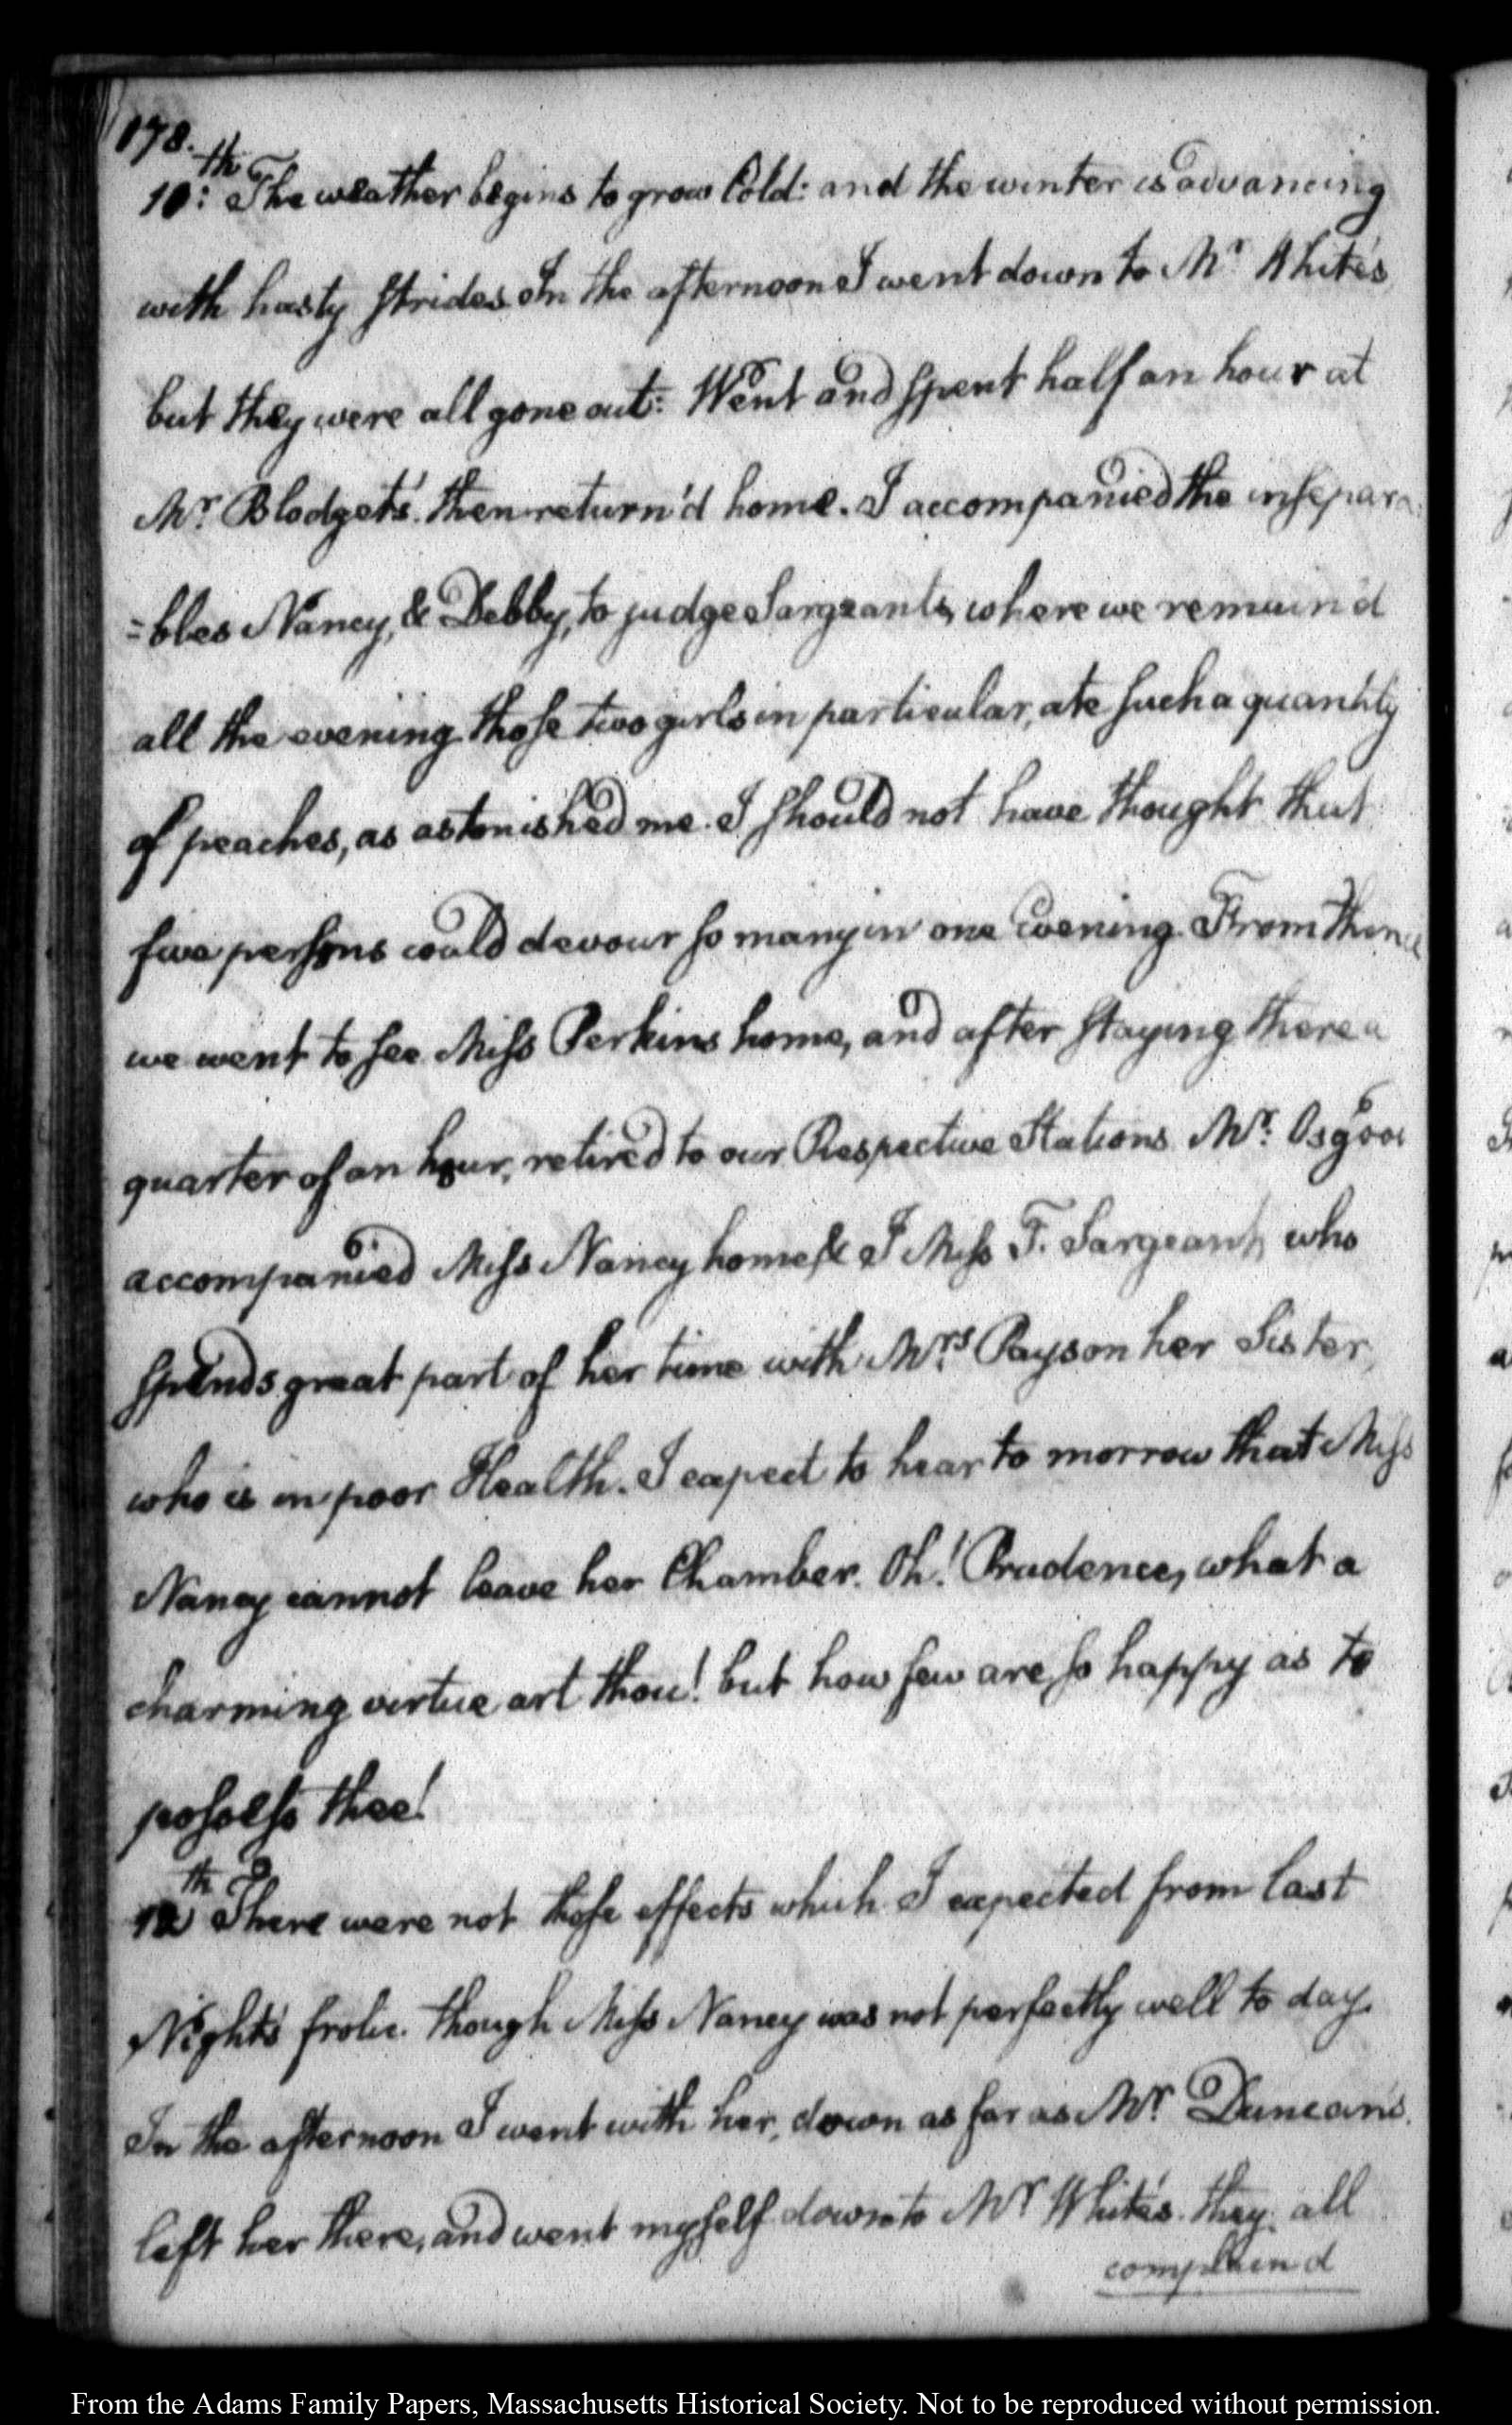 178.
10:th The weather begins to grow Cold: and the winter is advancing
with hasty strides. In the afternoon I went down to Mr. White's
but they were all gone out: Went and spent half an hour at
Mr. Blodget's. then return'd home. I accompanied the insepara
=bles Nancy, & Debby, to judge Sargeants, where we remain'd
all the evening. those two girls in particular, ate such a quantity
of peaches, as astonished me. I should not have thought that
five persons could devour so many in one Evening. From thence
we went to see Miss Perkins home, and after staying there a
quarter of an hour, retired to our Respective Stations. Mr. Osgood
accompanied Miss Nancy home, & I Miss T. Sargeant, who
spends great part of her time with Mrs. Payson her Sister,
who is in poor Health. I expect to hear to morrow that Miss
Nancy cannot leave her Chamber. Oh! Prudence, what a
charming virtue art thou! but how few are, so happy as to
possess thee!
th There were not those effects which I expected from last
Night's frolic. though Miss Nancy was not perfectly well to day.
In the afternoon I went with her, down as far as Mr. Duncan's.
left her there, and went myself down to Mr. White's. they all
complain'd
From the Adams Family Papers, Massachusetts Historical Society. Not to be reproduced without permission.